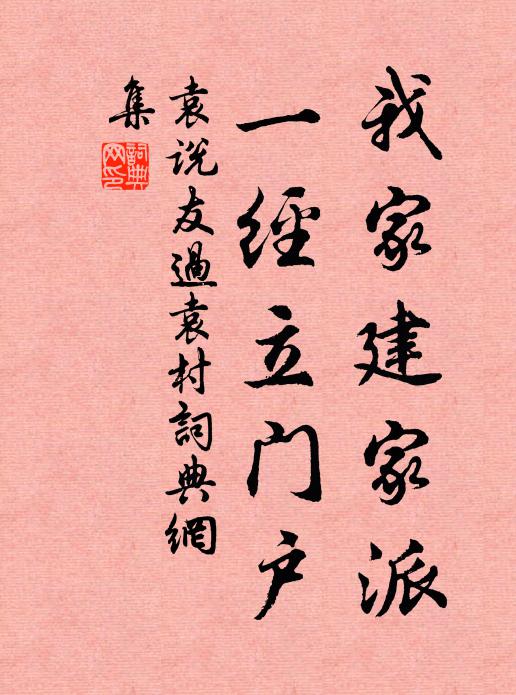 我家建家派
一經立门户
袁説友過袁村詞典網
集
詞典
网印